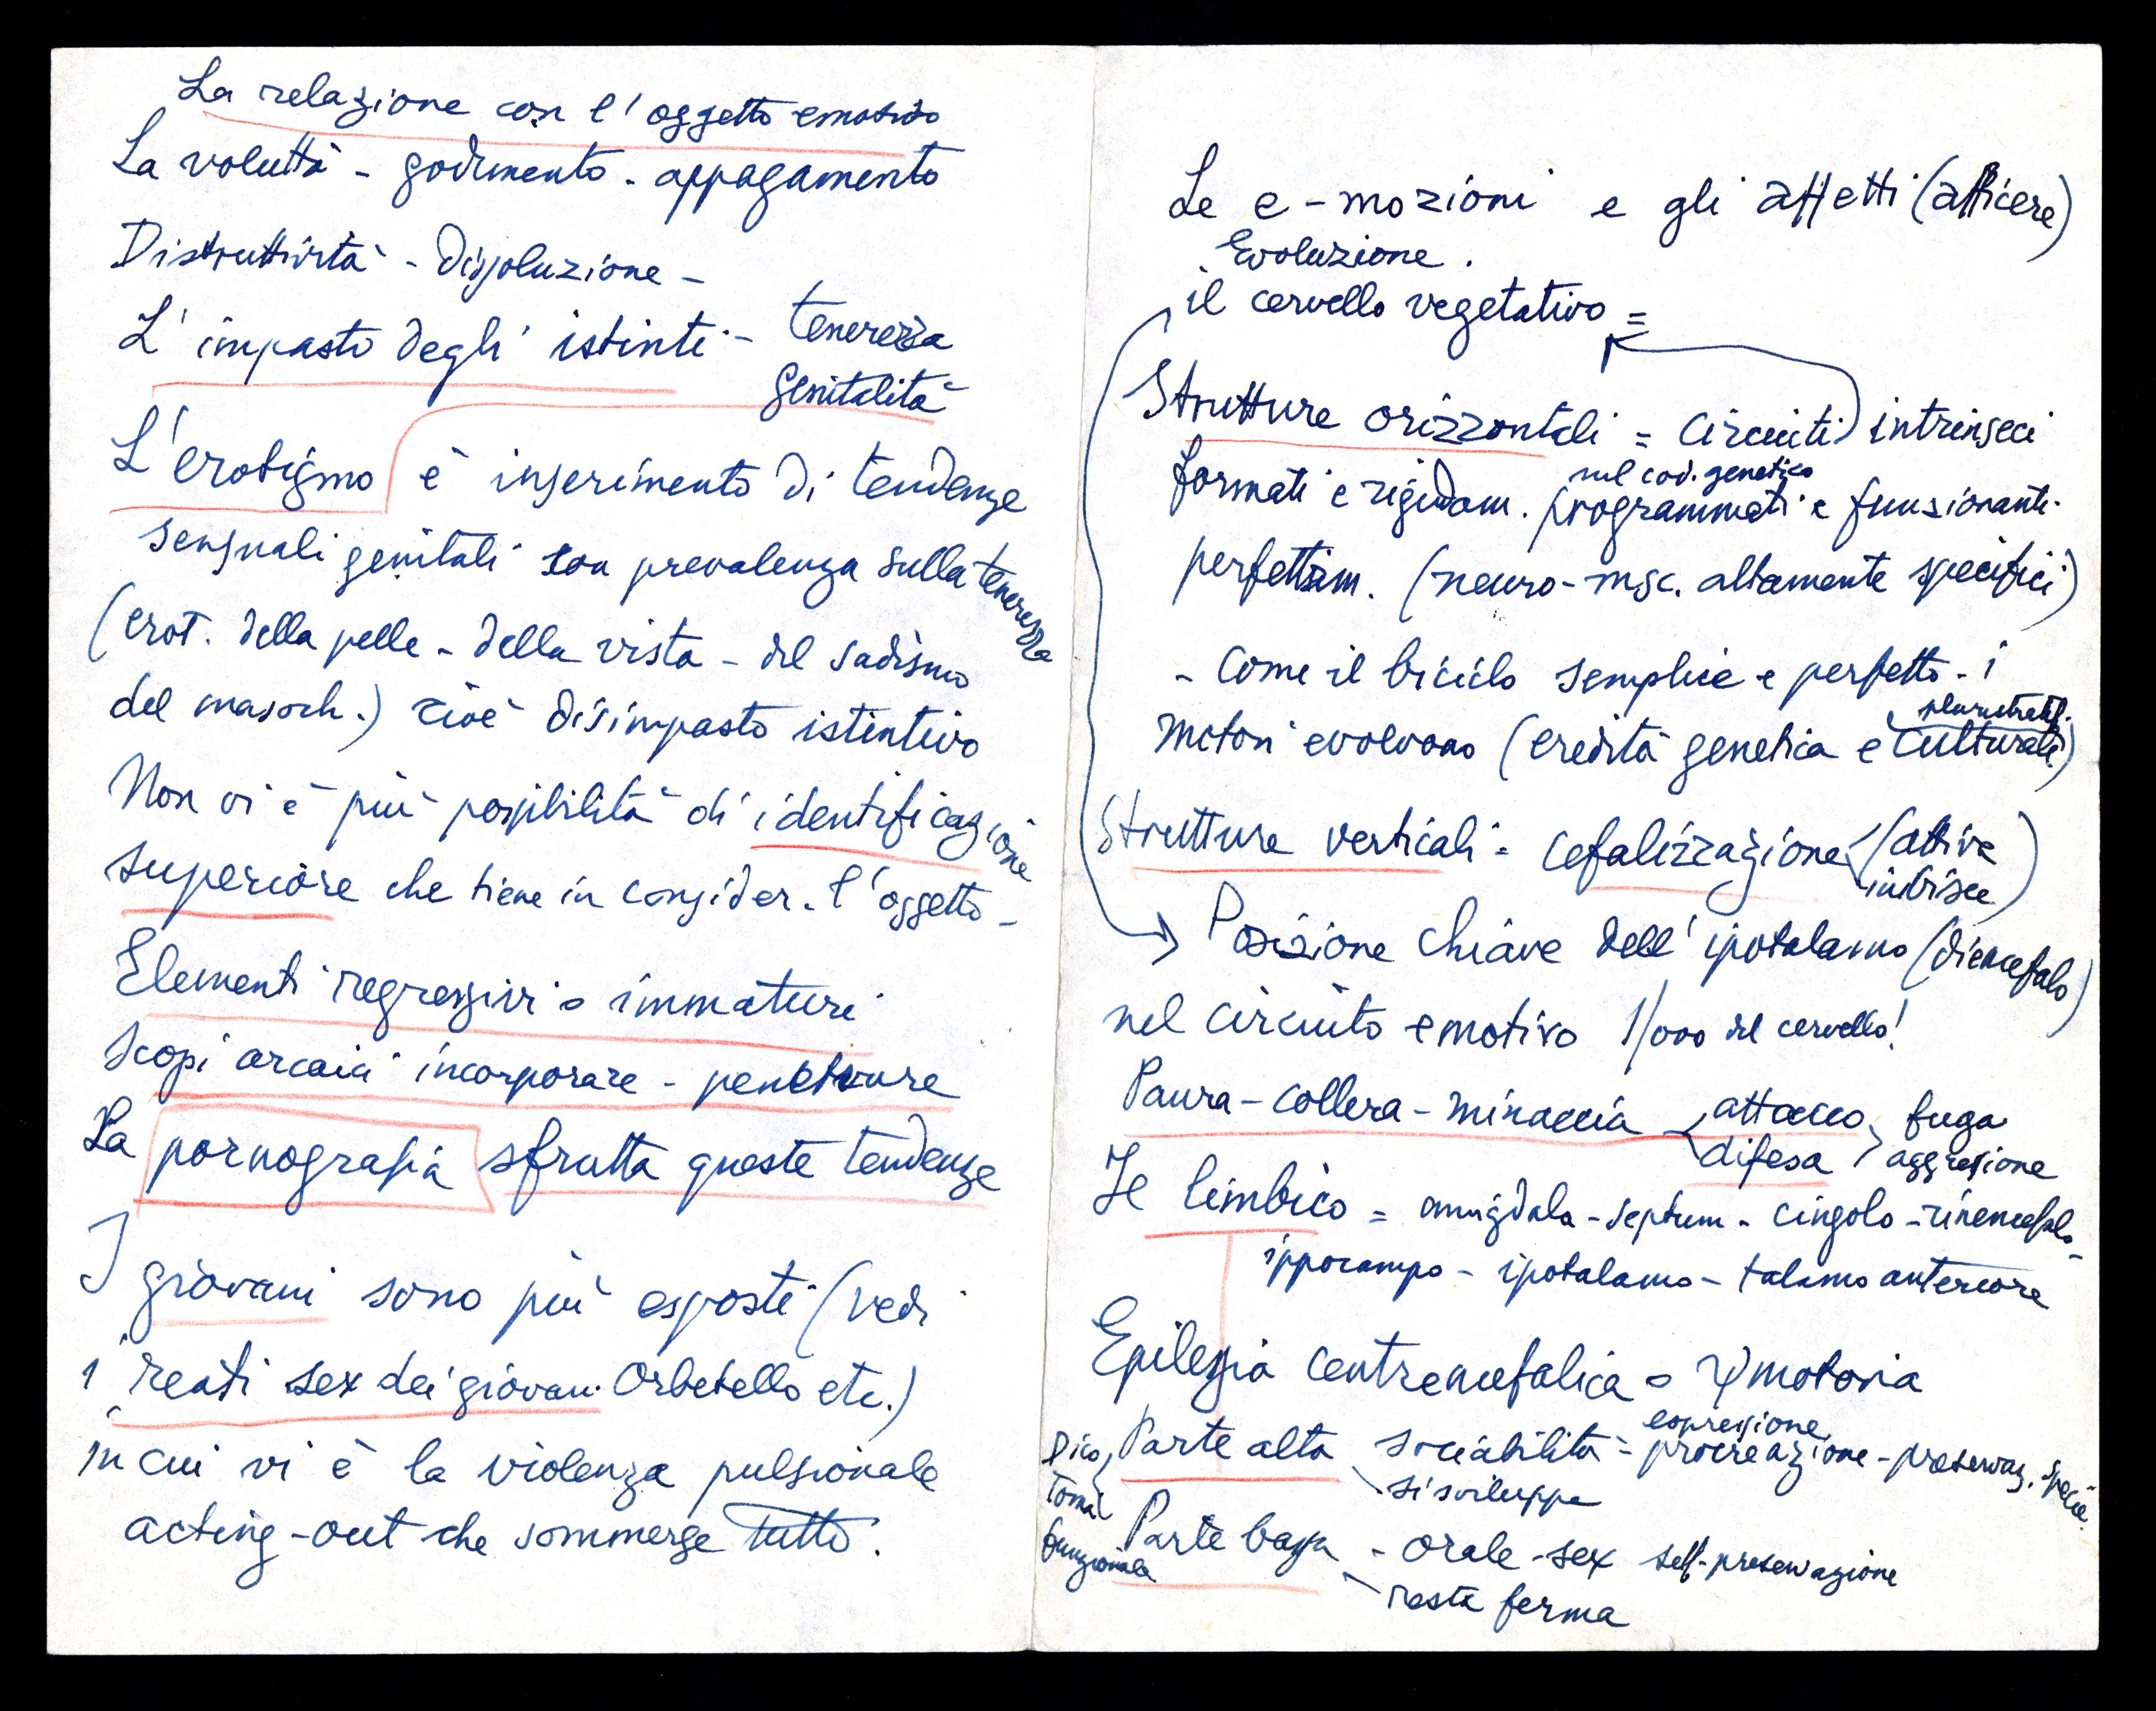 La relazione con l'oggetto emotivo
La voluttà - godimento - appagamento
Distruttività - Dissoluzione -
L'impasto degli istinti - tenerezza
genitalità
L'erotismo è inserimento di tendenze
sensuali genitali con prevalenza sulla tenerezza
(erot. della pelle - della vista - del sadismo
del masoch.) cioè disimpasto istintivo
Non vi è più possibilità di identificazione
superiore che tiene in consider. l'oggetto -
Elementi regressivi o immaturi
Scopi arcaici incorporare - penetrare
La pornografia sfrutta queste tendenze
I giovani sono più esposti (vedi
i reati sex dei giovani Orbetello etc.)
in cui vi è la violenza pulsionale
acting-out che sommerge tutto.
Le e-mozioni e gli affetti (afficere)
Evoluzione.
il cervello vegetativo =
Strutture orizzontali = circuiti intrinseci
nel cod. genetico
formati e rigidam. programmati e funzionanti
perfettam. (neuro-msc. altamente specifici)
- Come il biciclo semplice e perfetto - i
pluristratif.
motori evolvono (eredità genetica e culturale)
Strutture verticali = cefalizzazione (attiva
inibisce)
Posizione chiave dell'ipotalamo (diencefalo)
nel circuito emotivo 1/000 del cervello!
Paura - collera - minaccia attacco fuga
difesa aggressione
Il limbico = amigdala - septum - cingolo - rinencefalo -
ippocampo - ipotalamo - talamo anteriore
Epilessia centrencefalica o ψmotoria
espressione
Parte alta sociabilità = procreazione - preservaz. specie.
si sviluppa
Dico
tomia
funzionale
Parte bassa - orale - sex self-preservazione
resta ferma